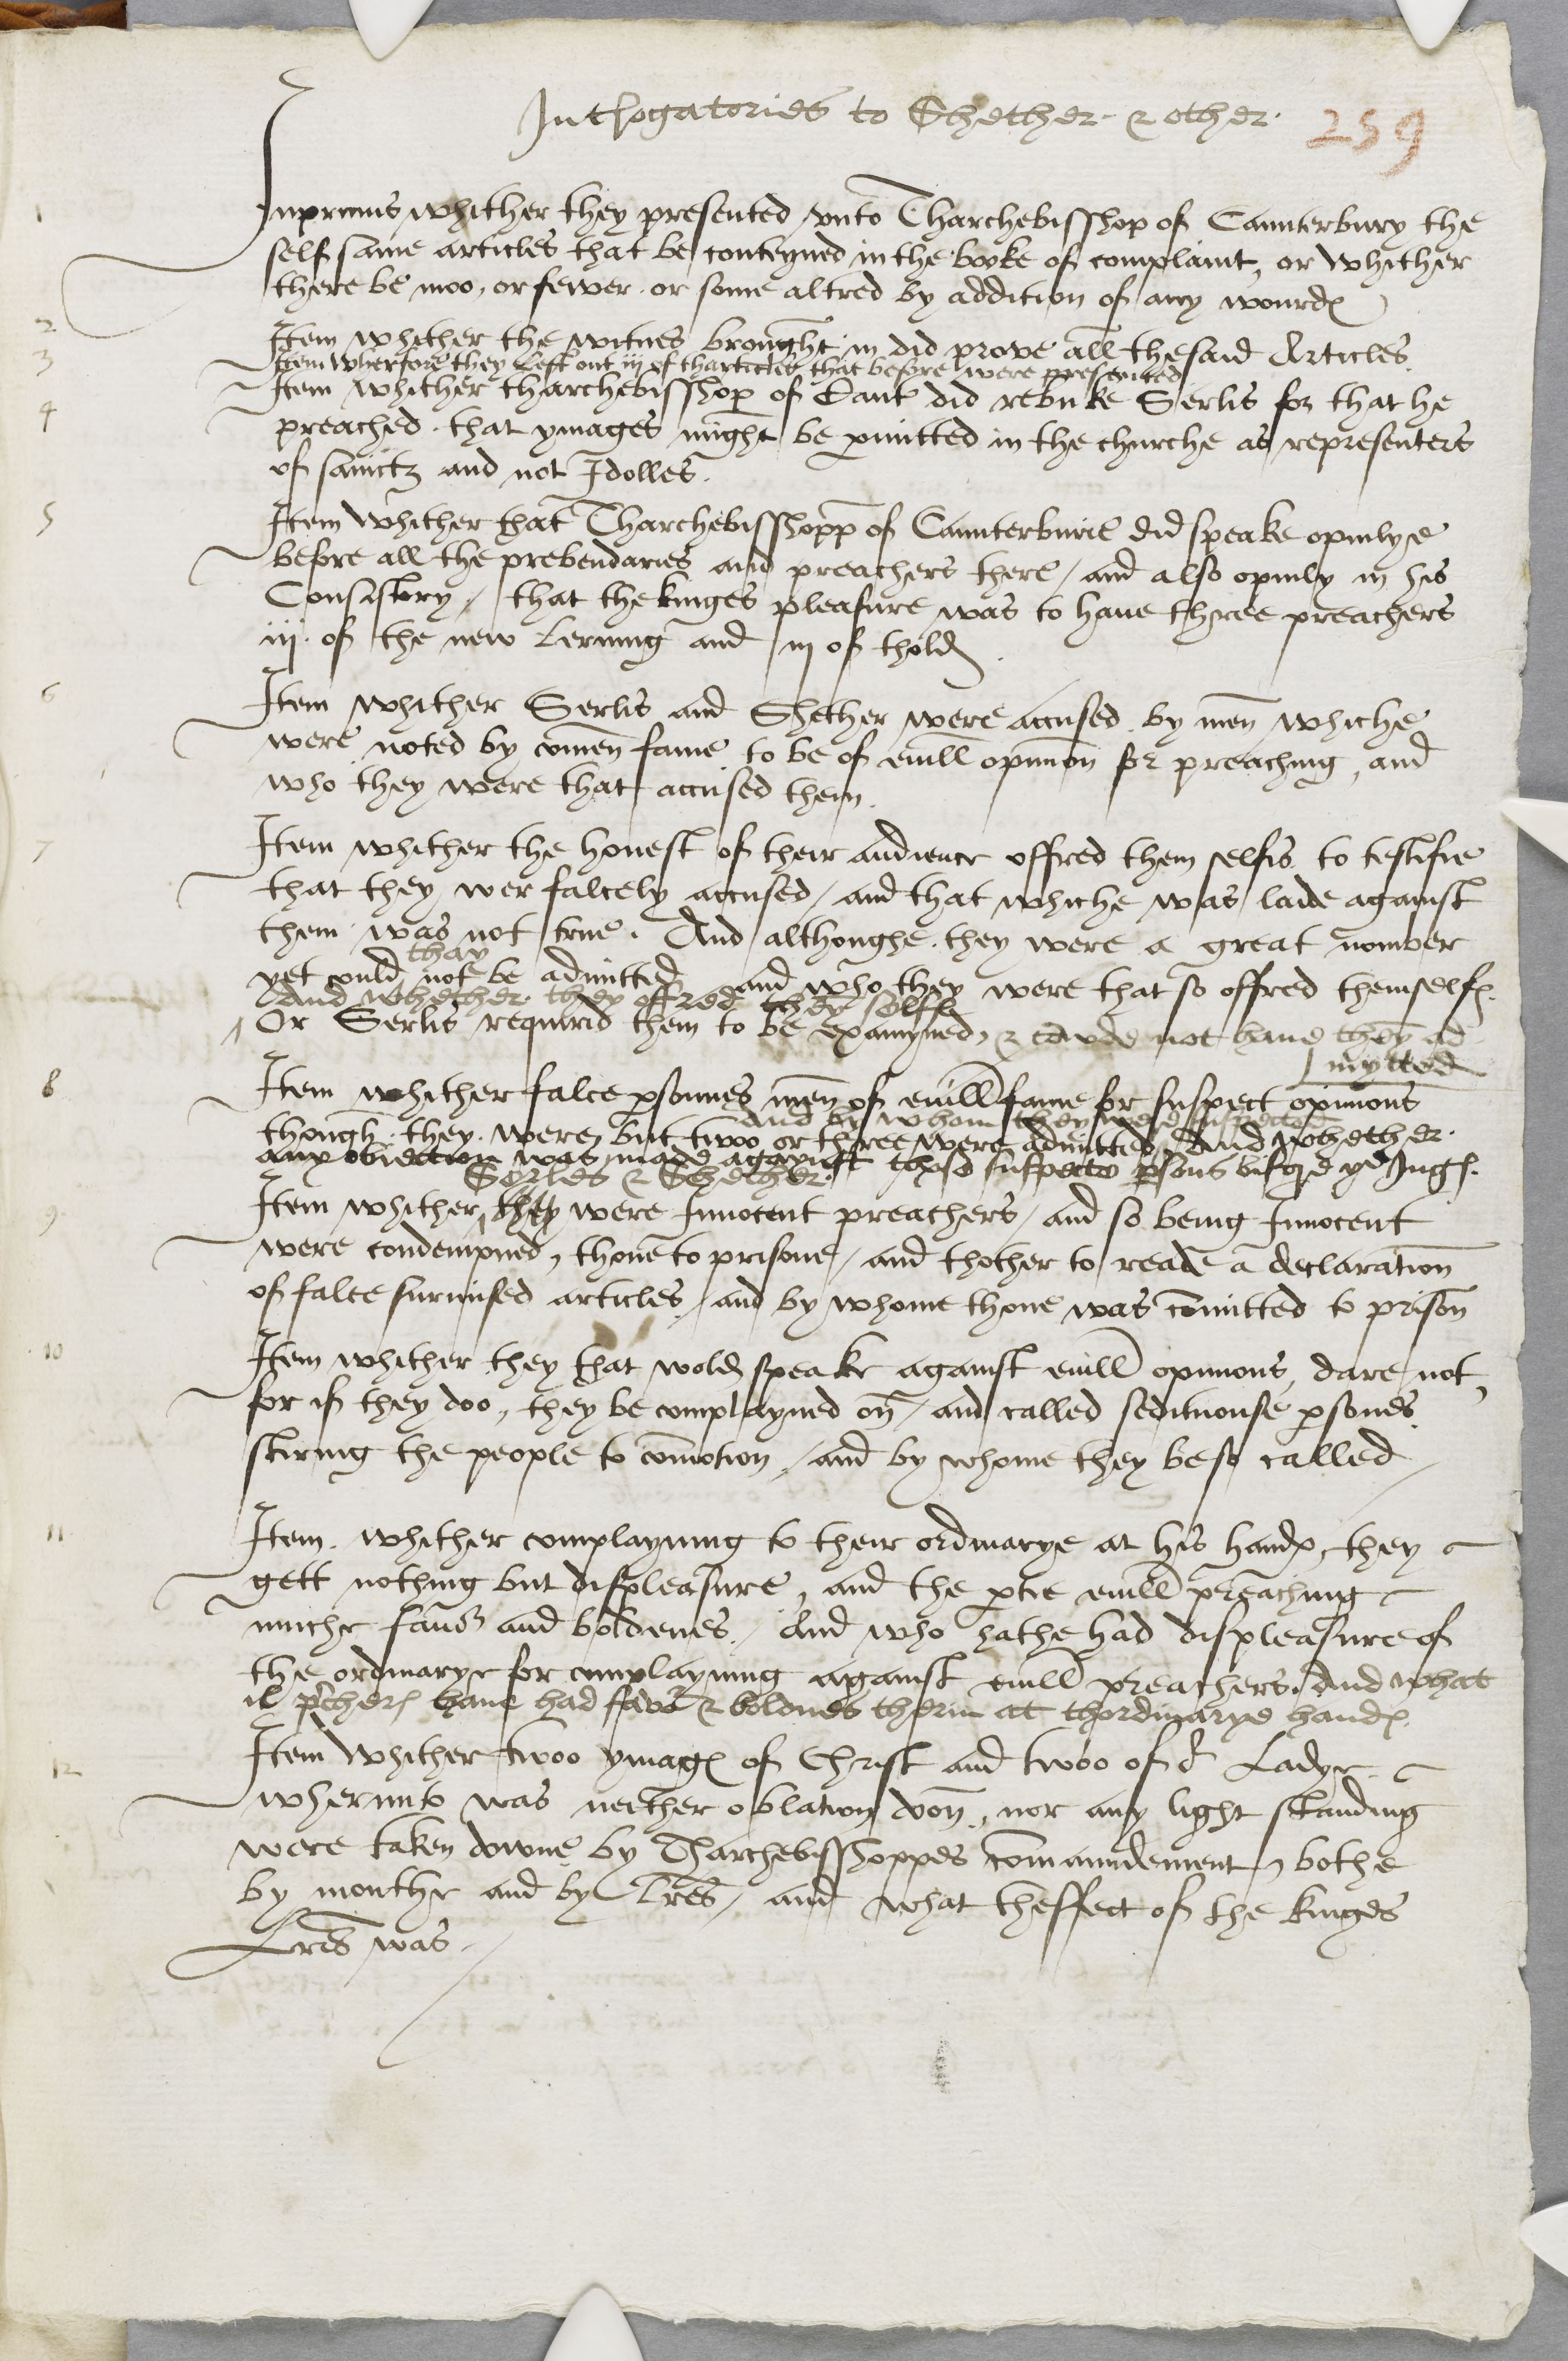 Inthogatories to Shether & other.
259
1 Inprimis whither they presented vnto Tharchebisshop of Caunterbury the
self same articles that be conteyned in the booke of complaint, or whither
there be moo, or fewer, or some altred by addition of any wourdes
2 Item whither the witnes brought in did prove all the said Articles.
3 Item wherfore they Left out iij of tharticles that before were presented
4 Item whither tharchebisshop of Cant did rebuke Serlis for that he
preached that ymages might be pmitted in the churche as representers
of sainctz and not Idolles.
5 Item whither that Tharchebisshopp of Caunterburie did speake opinlye
before all the prebendaries and preachers there / and also opinly in his
Consistory / that the kinges pleasure was to haue three preachers
iij. of the new lerning and iij of thold.
6 Item whither Serlis and Shether were accused by men whiche
were noted by comen fame to be of euill opinion for preaching, and
who they were that accused them.
7 Item whither the honest of their audience offred them selfis to testifie
that they wer falcely accused / and that whiche was laide against
them was not true. And althoughe they were a great nomber
thay
yet could not be admitted and who they were that so offred themselfes.
And whether they offred they selffe
Or Serlis requirid them to be examyned, & coude not haue them ad
mytted
8 Item whither falce psonnes men of euill fame or suspect opinions
And by whom they were suspected
though they were but twoo or three were admitted, And whether
any obiection was made agaynst thes suspecte psons bifore ye Juges.
Serles & Shether.
9 Item whither they were Innocent preachers / and so being Innocent
were condempned, thone to prisone / and thother to reade a declaration
of falce surmised articles, and by whome thone was comitted to prison
10 Item whither they that wold speake against euill opinions, dare not,
for if they doo, they be complayned on / and called seditiouse psones
stiring the people to comotion / and by whome they be so called
11 Item. whither complayning to their ordinarye at his handes they
gett nothing but displeasure, and the ptie euill preaching
muche fauor and boldenes. / And who hathe had displeasure of
the ordinarye for complayning against euill preachers. And what
il pchers haue had favor & boldnes therin at thordinarye handes.
12 Item whither twoo ymages of Christ and twoo of or Ladye
wherunto was neither oblation don, nor any light standing
were taken downe by Tharchebisshoppes commaundement, bothe
by mouthe and by lres / and what theffect of the kinges
Lres was.